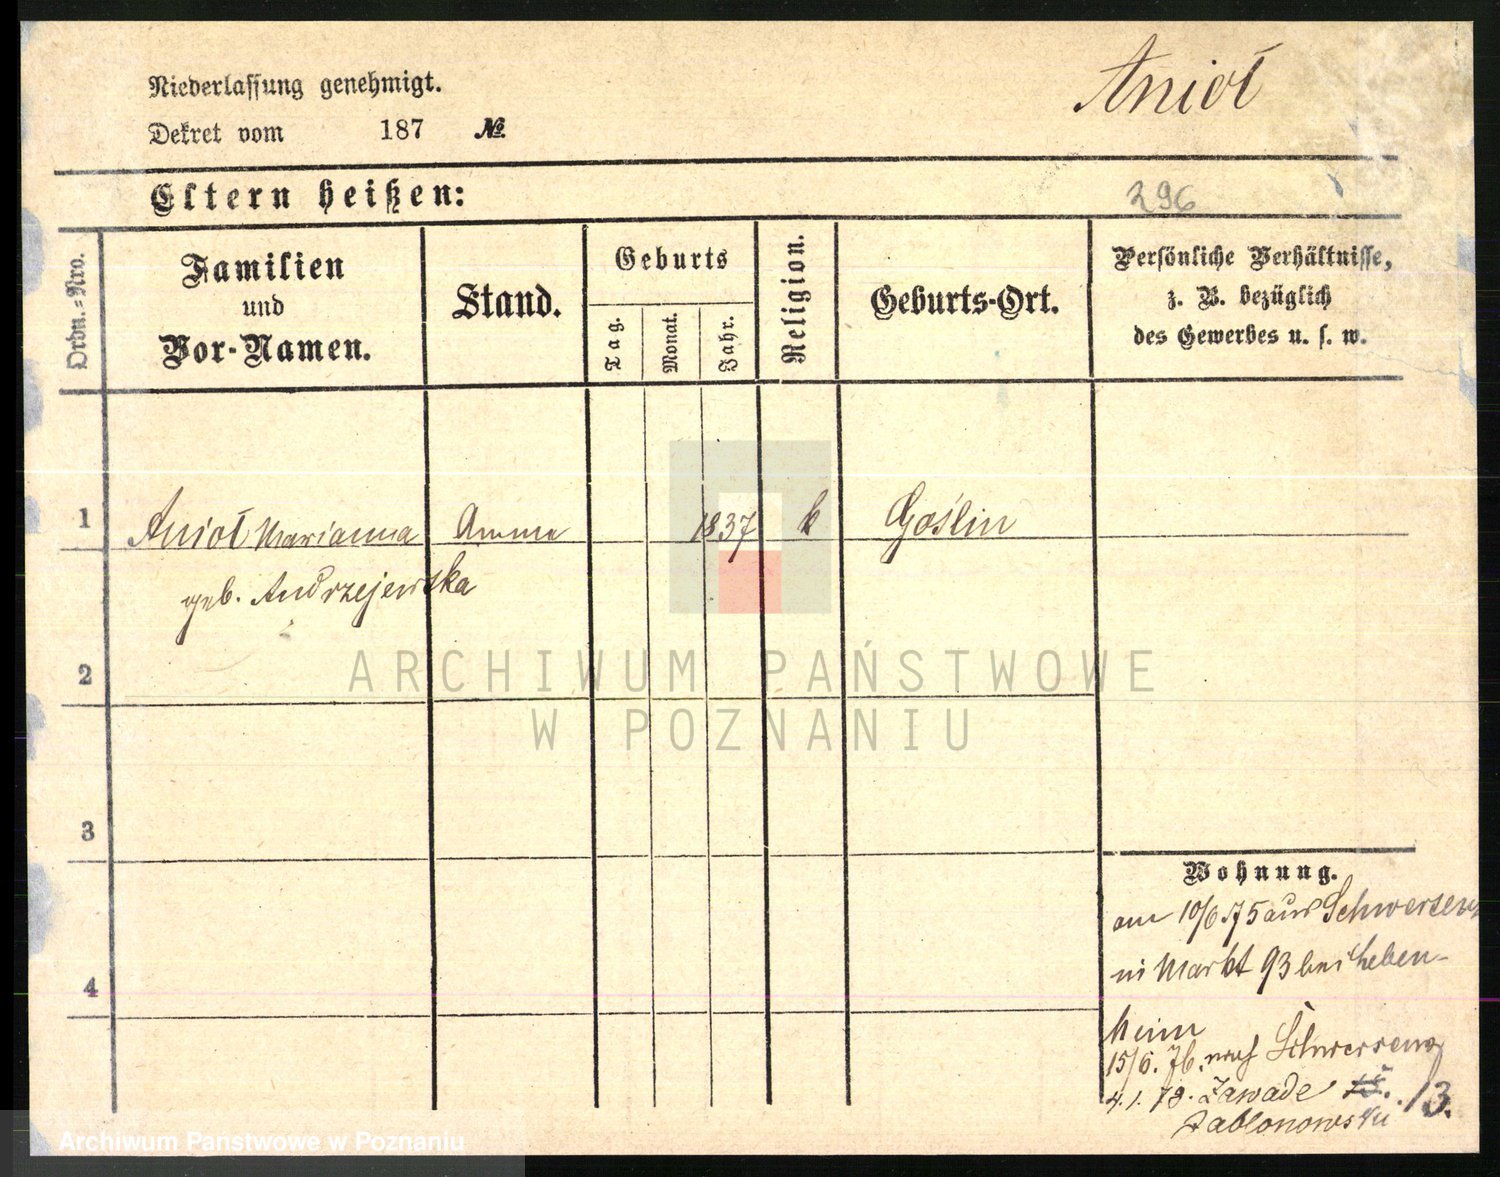 Anioł
Niederlassung genehmigt.
Dekret vom 187 №
Eltern heißen:
296
Ordn.-Nro.
Familien
und
Vor-Namen.
Stand.
Geburts
Tag.
Monat.
Jahr.
Religion.
Geburts-Ort.
Persönliche Verhältnisse,
z. B. bezüglich
des Gewerbes u. s. w.
1 Anioł Marianna Amme 1837 k Goślin
geb. Andrzejewska
2
3
4
Wohnung.
am 10/6 75 aus Schwersenz
Markt 93 bei Heben-
heim
15/6. 76. nach Schwersenz
4.1.78. Zawade 13.
Jabłonowski
ARCHIWUM PAŃSTWOWE
W POZNANIU
Archiwum Państwowe w Poznaniu